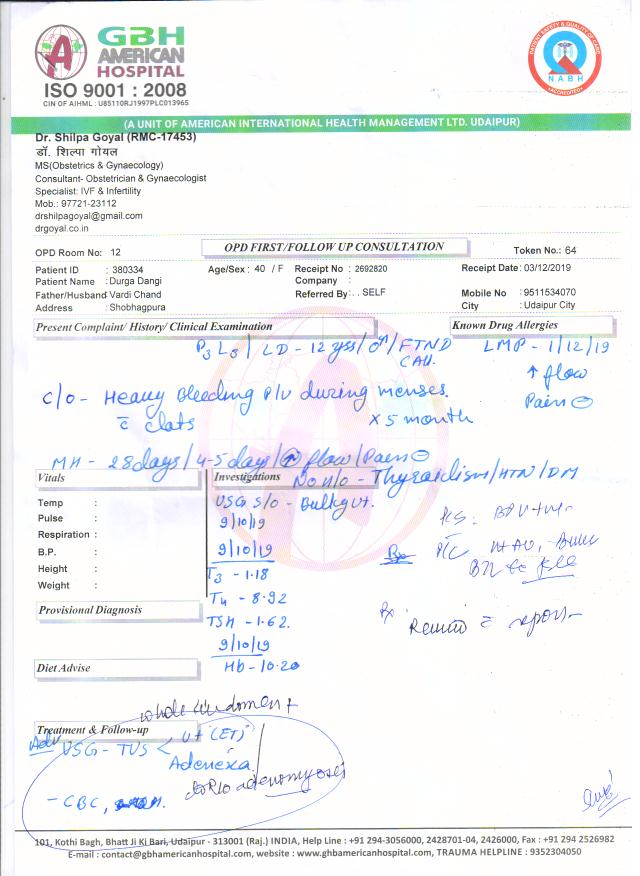 GBH
AMERICAN
HOSPITAL
ISO 9001 : 2008
CIN OF AIHML : U85110RJ1997PLC013965
PATIENT SAFETY & QUALITY OF CARE
NABH
ACCREDITED
(A UNIT OF AMERICAN INTERNATIONAL HEALTH MANAGEMENT LTD. UDAIPUR)
Dr. Shilpa Goyal (RMC-17453)
डॉ. शिल्पा गोयल
MS(Obstetrics & Gynaecology)
Consultant- Obstetrician & Gynaecologist
Specialist: IVF & Infertility
Mob.: 97721-23112
drshilpagoyal@gmail.com
drgoyal.co.in
OPD Room No: 12
OPD FIRST/FOLLOW UP CONSULTATION
Token No.: 64
Patient ID : 380334 Age/Sex : 40 / F Receipt No : 2692820 Receipt Date: 03/12/2019
Patient Name : Durga Dangi Company :
Father/Husband: Vardi Chand Referred By: . . SELF Mobile No : 9511534070
Address : Shobhagpura City : Udaipur City
Present Complaint/ History/ Clinical Examination Known Drug Allergies
P3 L3 / LD - 12 yrs / / FTND LMP - 1/12/19
↑ flow
Pain ⊖
C/O - Heavy Bleeding P/V during menses.
c̄ clots x 5 month
MH - 28 days / 4-5 days / ↑ flow / Pain ⊖
No H/O - Thyroidism / HTN / DM
Vitals
Investigations
Temp :
Pulse :
Respiration :
B.P. :
Height :
Weight :
USG S/O - Bulky ut.
9/10/19
9/10/19
T3 - 1.18
T4 - 8.92
TSH - 1.62.
9/10/19
Hb - 10.20
Rx
Review c̄ report
Provisional Diagnosis
Diet Advise
whole
Treatment & Follow-up
Adv
USG - TVS < Ut (ET)
Adenexa
to R/o adenomyosis
- CBC,
101, Kothi Bagh, Bhatt Ji Ki Bari, Udaipur - 313001 (Raj.) INDIA, Help Line : +91 294-3056000, 2428701-04, 2426000, Fax : +91 294 2526982
E-mail : contact@gbhamericanhospital.com, website : www.gbhamericanhospital.com, TRAUMA HELPLINE : 9352304050